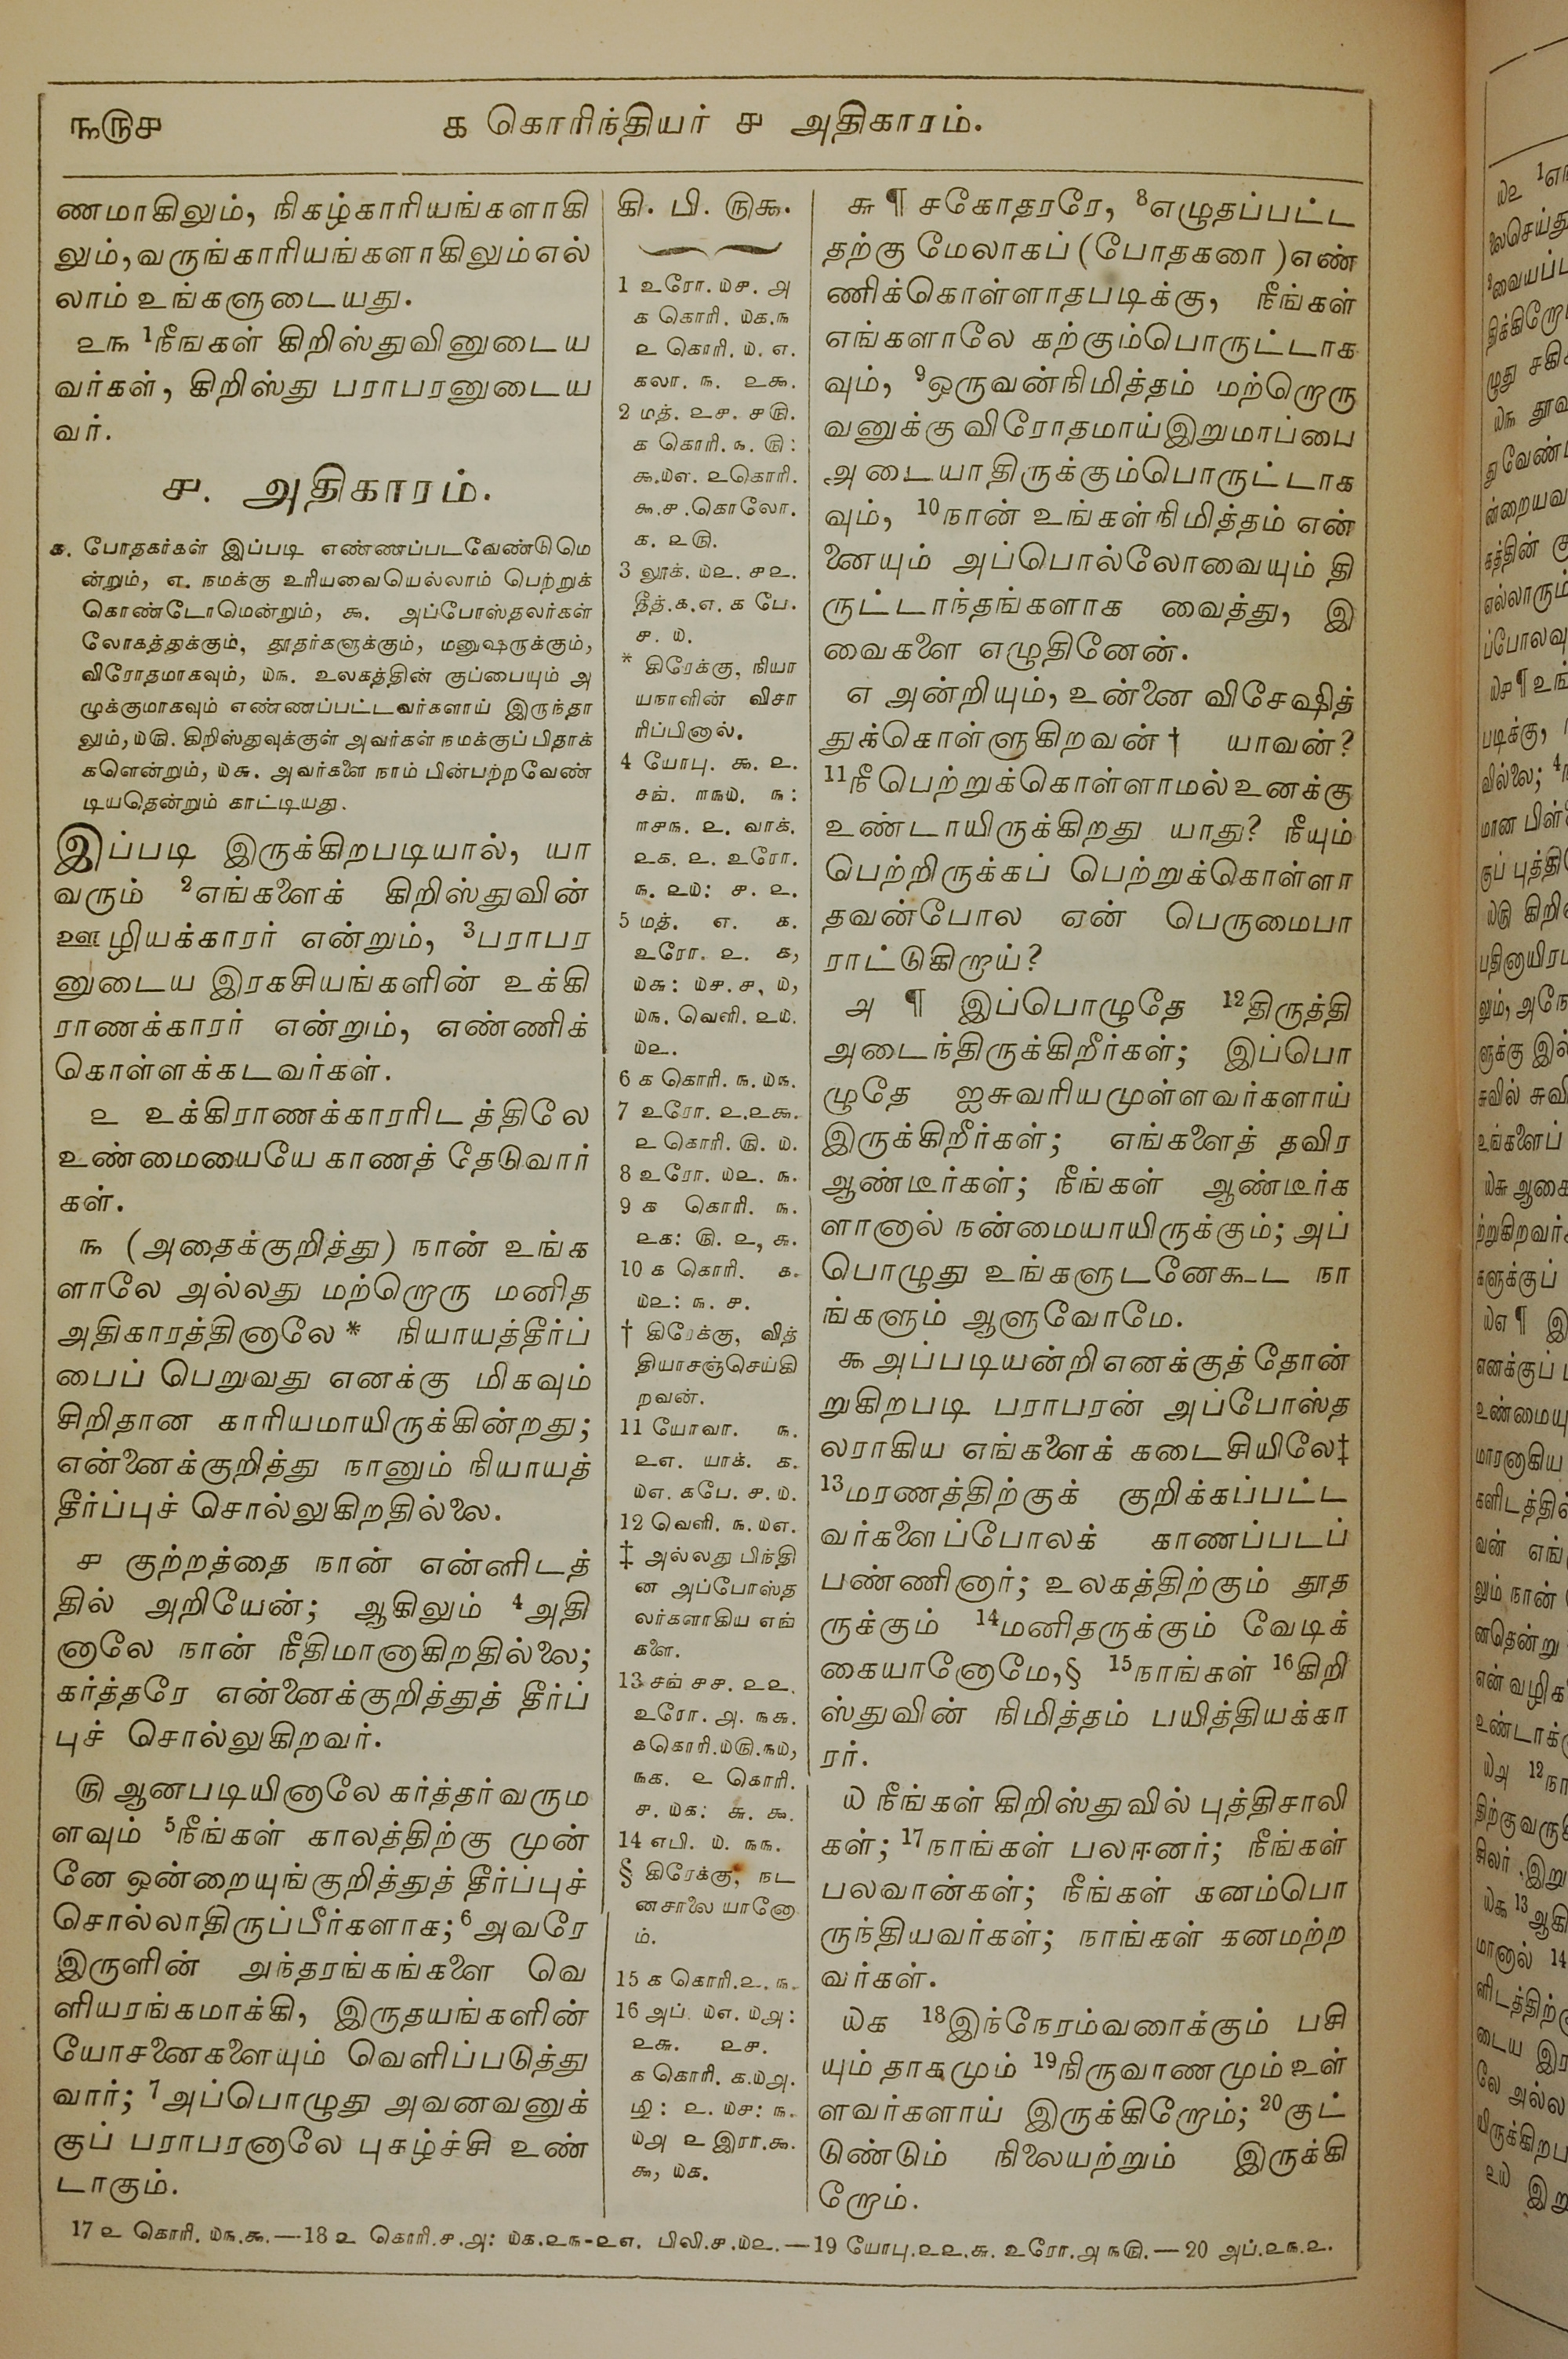 ௩௫௪
௧ கொரிந்தியர் ௪ அதிகாரம்.
ணமாகிலும், நிகழ்காரியங்களாகி
லும்,வருங்காரியங்களாகிலும்எல்
லாம் உங்களுடையது.
௨௩ 1நீங்கள் கிறிஸ்துவினுடைய
வர்கள், கிறிஸ்து பராபரனுடைய
வர்.
௪. அதிகாரம்.
௧. போதகர்கள் இப்படி எண்ணப்படவேண்டுமெ
ன்றும், ௭. நமக்கு உரியவையெல்லாம் பெற்றுக்
கொண்டோமென்றும், ௯. அப்போஸ்தலர்கள்
லோகத்துக்கும், தூதர்களுக்கும், மனுஷருக்கும்,
விரோதமாகவும், ௰௩. உலகத்தின் குப்பையும் அ
ழுக்குமாகவும் எண்ணப்பட்டவர்களாய் இருந்தா
லும்,௰௫. கிறிஸ்துவுக்குள் அவர்கள் நமக்குப் பிதாக்
களென்றும், ௰௬. அவர்களை நாம் பின்பற்றவேண்
டியதென்றும் காட்டியது.
இப்படி இருக்கிறபடியால், யா
வரும் 2எங்களைக் கிறிஸ்துவின்
ஊழியக்காரர் என்றும், 3பராபர
னுடைய இரகசியங்களின் உக்கி
ராணக்காரர் என்றும், எண்ணிக்
கொள்ளக்கடவர்கள்.
௨ உக்கிராணக்காரரிடத்திலே
உண்மையையே காணத் தேடுவார்
கள்.
௩ (அதைக்குறித்து) நான் உங்க
ளாலே அல்லது மற்றொரு மனித
அதிகாரத்தினாலே* நியாயத்தீர்ப்
பைப் பெறுவது எனக்கு மிகவும்
சிறிதான காரியமாயிருக்கின்றது;
என்னைக்குறித்து நானும் நியாயத்
தீர்ப்புச் சொல்லுகிறதில்லை.
௪ குற்றத்தை நான் என்னிடத்
தில் அறியேன்; ஆகிலும் 4அதி
னாலே நான் நீதிமானாகிறதில்லை;
கர்த்தரே என்னைக்குறித்துத் தீர்ப்
புச் சொல்லுகிறவர்.
௫ ஆனபடியினாலே கர்த்தர்வரும
ளவும் 5நீங்கள் காலத்திற்கு முன்
னே ஒன்றையுங்குறித்துத் தீர்ப்புச்
சொல்லாதிருப்பீர்களாக;6அவரே
இருளின் அந்தரங்கங்களை வெ
ளியரங்கமாக்கி, இருதயங்களின்
யோசனைகளையும் வெளிப்படுத்து
வார்; 7அப்பொழுது அவனவனுக்
குப் பராபரனாலே புகழ்ச்சி உண்
டாகும்.
கி. பி. ௫௯.
1 உரோ. ௰௪. ௮
௧ கொரி. ௰௧.௩
௨ கொரி. ௰. ௭.
கலா. ௩. ௨௯.
2 மத். ௨௪. ௪௫.
௧ கொரி. ௩. ௫:
௯.௰௭. ௨கொரி.
௬.௪.கொலோ.
௧. ௨௫.
3 லூக். ௰௨. ௪௨.
தீத்.௧.௭. ௧ பே.
௪. ௰.
* கிரேக்கு, நியா
யநாளின் விசா
ரிப்பினால்.
4 யோபு. ௯. ௨.
சங். ௱௩௰. ௩:
௱௪௩. ௨. வாக்.
௨௧. ௨. உரோ.
௩. ௨௰: ௪. ௨.
5 மத். ௭. ௧.
உரோ. ௨. ௧,
௰௬: ௰௪.௪, ௰,
௰௩. வெளி. ௨௰.
௰௨.
6 ௧ கொரி. ௩. ௰௩.
7 உரோ. ௨.௨௯.
௨ கொரி. ௫. ௰.
8 உரோ. ௰௨. ௩.
9 ௧ கொரி. ௩.
௨௧: ௫. ௨, ௬.
10 ௧ கொரி. ௧.
௰௨: ௩. ௪.
† கிரேக்கு, வித்
தியாசஞ்செய்கி
றவன்.
11 யோவா. ௩.
௨௭. யாக். ௧.
௰௭. ௧பே. ௪. ௰.
12 வெளி. ௩.௰௭.
‡ அல்லது பிந்தி
ன அப்போஸ்த
லர்களாகிய எங்
களை.
13 சங் ௪௪. ௨௨.
உரோ. ௮. ௩௬.
௧கொரி.௰௫.௩௰,
௩௧. ௨ கொரி.
௪. ௰௧: ௬. ௯.
14 எபி. ௰. ௩௩.
§ கிரேக்கு, நட
னசாலை யானோ
ம்.
15 ௧ கொரி.௨. ௩.
16 அப். ௰௭. ௰௮:
௨௬. ௨௪.
௧ கொரி. ௧.௰௮.
௨. ௰௪: ௩.
௰௮ ௨ இரா.௯.
௯, ௰௧.
௬ ¶ சகோதரரே, 8எழுதப்பட்ட
தற்கு மேலாகப் (போதகரை )எண்
ணிக்கொள்ளாதபடிக்கு, நீங்கள்
எங்களாலே கற்கும்பொருட்டாக
வும், 9ஒருவன்நிமித்தம் மற்றொரு
வனுக்கு விரோதமாய்இறுமாப்பை
அடையாதிருக்கும்பொருட்டாக
வும், 10நான் உங்கள்நிமித்தம் என்
னையும் அப்பொல்லோவையும் தி
ருட்டாந்தங்களாக வைத்து, இ
வைகளை எழுதினேன்.
௭ அன்றியும், உன்னை விசேஷித்
துக்கொள்ளுகிறவன்† யாவன்?
11நீ பெற்றுக்கொள்ளாமல் உனக்கு
உண்டாயிருக்கிறது யாது? நீயும்
பெற்றிருக்கப் பெற்றுக்கொள்ளா
தவன்போல ஏன் பெருமைபா
ராட்டுகிறாய்?
௮ ¶ இப்பொழுதே 12திருத்தி
அடைந்திருக்கிறீர்கள்; இப்பொ
ழுதே ஐசுவரியமுள்ளவர்களாய்
இருக்கிறீர்கள்; எங்களைத் தவிர
ஆண்டீர்கள்; நீங்கள் ஆண்டீர்க
ளானால் நன்மையாயிருக்கும்; அப்
பொழுது உங்களுடனேகூட நா
ங்களும் ஆளுவோமே.
௯ அப்படியன்றி எனக்குத் தோன்
றுகிறபடி பராபரன் அப்போஸ்த
லராகிய எங்களைக் கடைசியிலே‡
13மரணத்திற்குக் குறிக்கப்பட்ட
வர்களைப்போலக் காணப்படப்
பண்ணினார்; உலகத்திற்கும் தூத
ருக்கும் 14மனிதருக்கும் வேடிக்
கையானோமே,§ 15நாங்கள் 16கிறி
ஸ்துவின் நிமித்தம் பயித்தியக்கா
ரர்.
௰ நீங்கள் கிறிஸ்துவில் புத்திசாலி
கள்; 17நாங்கள் பலஈனர்; நீங்கள்
பலவான்கள்; நீங்கள் கனம்பொ
ருந்தியவர்கள்; நாங்கள் கனமற்ற
வர்கள்.
௰௧ 18இந்நேரம்வரைக்கும் பசி
யும் தாகமும் 19நிருவாணமும் உள்
ளவர்களாய் இருக்கிறோம்; 20குட்
டுண்டும் நிலையற்றும் இருக்கி
றோம்.
17 ௨ கொரி. ௰௩.௯.—18 ௨ கொரி.௪.௮: ௰௧.௨௩-௨௭. பிலி.௪.௰௨.—19 யோபு.௨௨.௬. உரோ.௮ ௩௫.— 20 அப்.௨௩.௨.